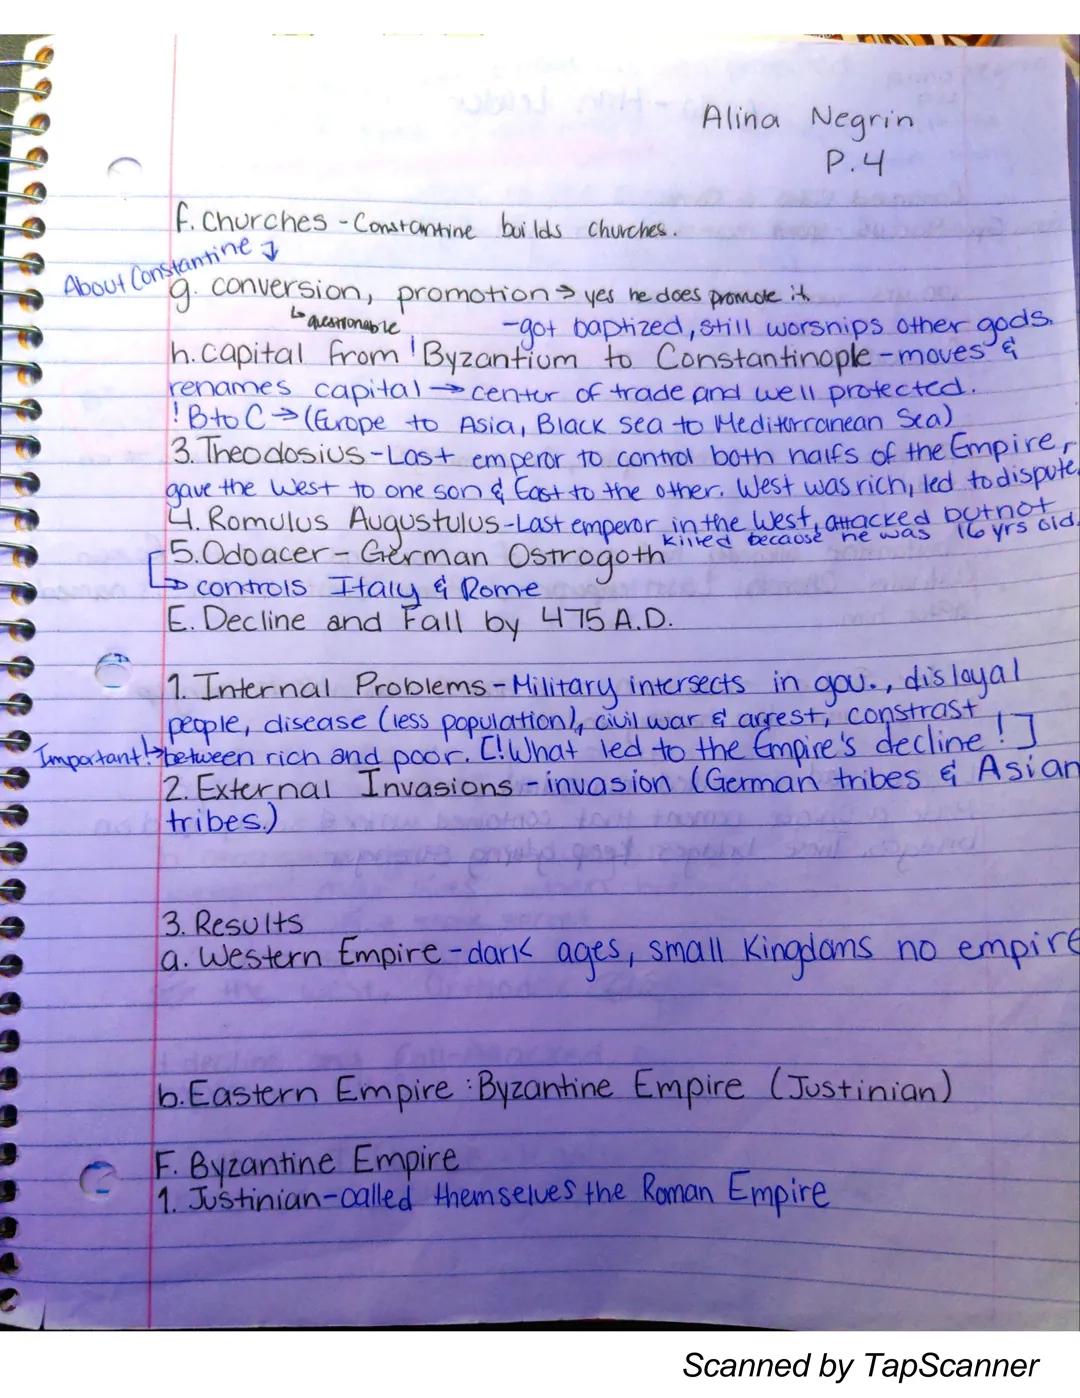 Alina Negrin
P.4
f. Churches - Constantine builds churches.
About Constantine
g. conversion, promotion → yes he does promote it
↳ questionable - got baptized, still worships other gods.
h. capital from ! Byzantium to Constantinople - moves &
renames capital → center of trade and well protected.
! B to C → (Europe to Asia, Black Sea to Mediterranean Sea)
3. Theodosius - Last emperor to control both halfs of the Empire,
gave the West to one son & East to the other. West was rich, led to dispute.
4. Romulus Augustulus - Last emperor in the West, attacked but not
killed because he was 16 yrs old.
5. Odoacer - German Ostrogoth
↳ controls Italy & Rome
E. Decline and Fall by 475 A.D.
1. Internal Problems - Military intersects in gov., disloyal
people, disease (less population), civil war & arrest, constrast
Important! → between rich and poor. [! What led to the Empire's decline!]
2. External Invasions - invasion (German tribes & Asian
tribes.)
3. Results
a. Western Empire - dark ages, small Kingdoms no empire
b. Eastern Empire : Byzantine Empire (Justinian)
F. Byzantine Empire
1. Justinian - called themselves the Roman Empire
Scanned by TapScanner